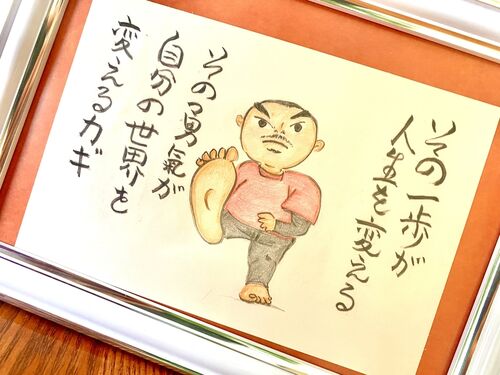 その一歩が
人生を変える
その勇氣が
自分の世界を
変えるカギ